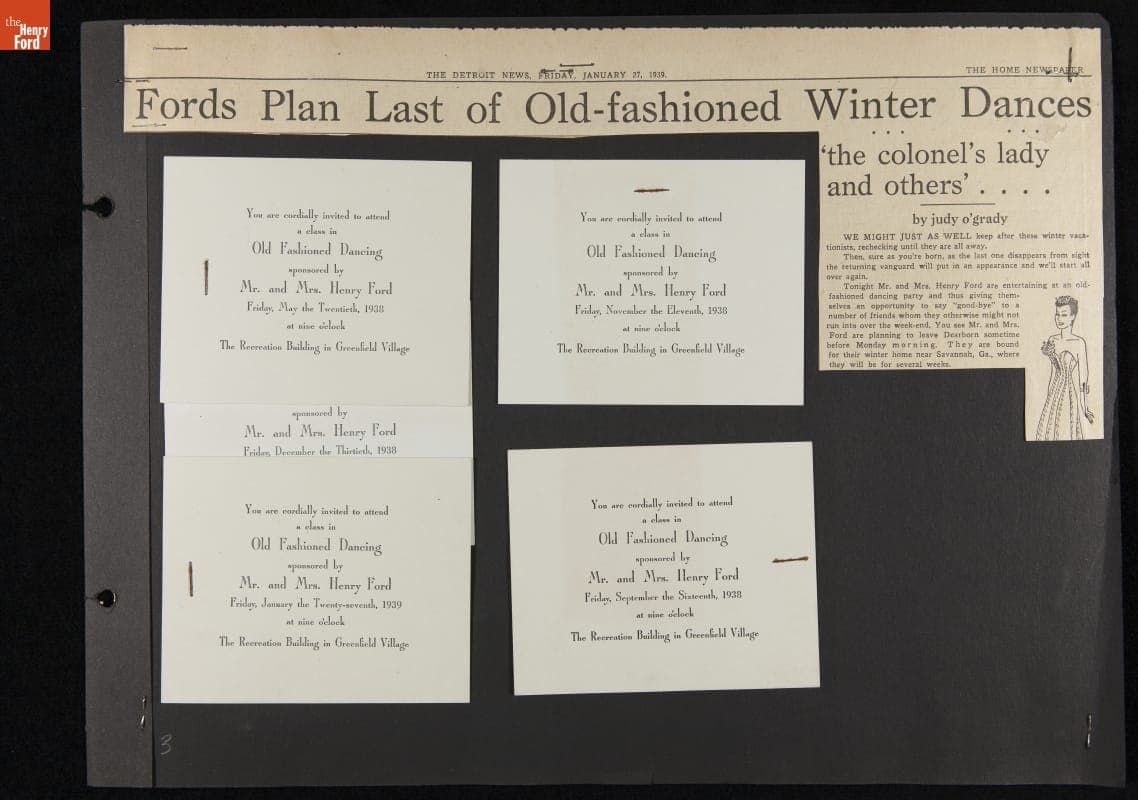 the
Henry
Ford
THE DETROIT NEWS, FRIDAY, JANUARY 27, 1939.
THE HOME NEWSPAPER
Fords Plan Last of Old-fashioned Winter Dances
'the colonel's lady
and others' . . . .
by judy o'grady
WE MIGHT JUST AS WELL keep after these winter vaca-
tionists, rechecking until they are all away.
Then, sure as you're born, as the last one disappears from sight
the returning vanguard will put in an appearance and we'll start all
over again.
Tonight Mr. and Mrs. Henry Ford are entertaining at an old-
fashioned dancing party and thus giving them-
selves an opportunity to say "good-bye" to a
number of friends whom they otherwise might not
run into over the week-end. You see Mr. and Mrs.
Ford are planning to leave Dearborn sometime
before Monday morning. They are bound
for their winter home near Savannah, Ga., where
they will be for several weeks.
You are cordially invited to attend
a class in
Old Fashioned Dancing
sponsored by
Mr. and Mrs. Henry Ford
Friday, May the Twentieth, 1938
at nine o'clock
The Recreation Building in Greenfield Village
You are cordially invited to attend
a class in
Old Fashioned Dancing
sponsored by
Mr. and Mrs. Henry Ford
Friday, November the Eleventh, 1938
at nine o'clock
The Recreation Building in Greenfield Village
sponsored by
Mr. and Mrs. Henry Ford
Friday, December the Thirtieth, 1938
You are cordially invited to attend
a class in
Old Fashioned Dancing
sponsored by
Mr. and Mrs. Henry Ford
Friday, January the Twenty-seventh, 1939
at nine o'clock
The Recreation Building in Greenfield Village
You are cordially invited to attend
a class in
Old Fashioned Dancing
sponsored by
Mr. and Mrs. Henry Ford
Friday, September the Sixteenth, 1938
at nine o'clock
The Recreation Building in Greenfield Village
3